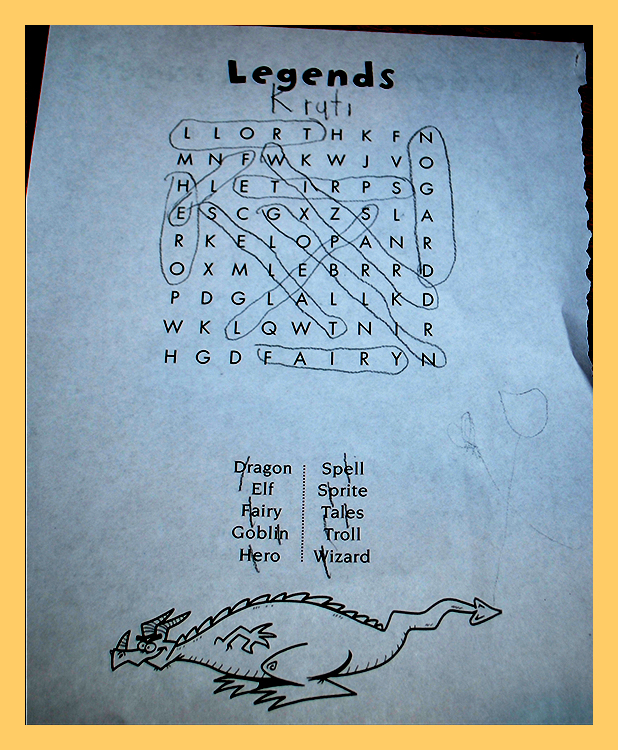 Legends
Kryti
L L O R T H K F N
M N F W K W J V O
H L E T I R P S G
E S C G X Z S L A
R K E L O P A N R
O X M L E B R R D
P D G L A L L K D
W K L Q W T N I R
H G D F A I R Y N
Dragon Spell
Elf Sprite
Fairy Tales
Goblin Troll
Hero Wizard